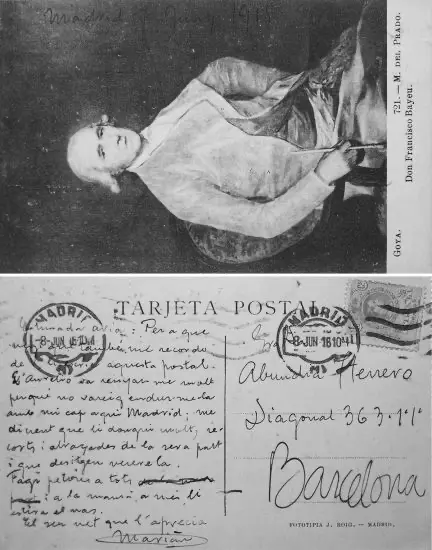 Madrid 7 Juny 1918
GOYA.
721. — M. DEL PRADO.
Don Francisco Bayeu.
TARJETA POSTAL
MADRID
8-JUN 18 10M
MADRID
8-JUN 18 10M
Estimada avia: Pera que
vegi que també me recordo
de aquesta postal.
L'Aurelio va renyar-me molt
perqué no vareig endur-me-la
amb mi cap aquí Madrid; me
diuent que li dongui molts re-
corts i abraçades de la seva part
i que desitgen veure-la.
Faci petons a tots
i a la mamá, a més li
estira el nas.
El seu net que l'aprecia
Marián
Sra
Abundia Herrero
Diagonal 363-1º-1ª
Barcelona
FOTOTIPIA J. ROIG. — MADRID.